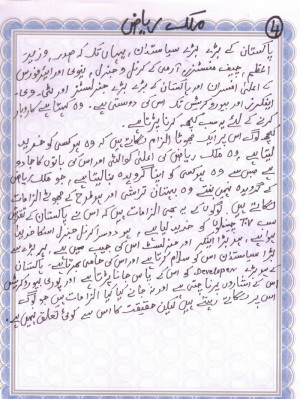 4
ملک ریاض
پاکستان کے بڑے بڑے سیاستدان، یہاں تک کہ صدر، وزیر
اعظم، چیف منسٹرز، آرمی کے کرنل و جنرل، نیوی اور ایئرفورس
کے اعلیٰ افسران اور پاکستان کے بڑے بڑے جرنلسٹز اور ٹی۔وی۔
اینکرز اور بیوروکریٹس تک اس کی دوستی ہے۔ وہ کہتا ہے کاروبار
کرنے کے لئے یہ سب کچھ کرنا پڑتا ہے۔
کچھ لوگ اس پر یہ جھوٹا الزام لگاتے ہیں کہ وہ ہر کسی کو خرید
لیتا ہے۔ وہ ملک ریاض کی اعلیٰ کوالٹی اور اس کی باتوں کا جادو
ہے جس سے وہ ہر کسی کو اپنا گرویدہ بنا لیتا ہے، جو ملک ریاض
کے گرویدہ نہیں بنتے وہ بہتان تراشی اور ہر طرح کے جھوٹے الزامات
لگاتے ہیں۔ لوگوں کے یہ بھی الزامات ہیں کہ اس نے پاکستان کے تقریباً
سب TV چینلز کو خرید لیا ہے، ہر دوسرا کرنل جنرل اس کا خریدا
ہوا ہے، ہر بڑا اینکر اور جرنلسٹ اس کی جیب میں ہے، ہر بڑے سے
بڑا سیاستدان اس کو سلام کرتا ہے اور اس کی حامی بھرتا ہے۔ پاکستان
کے ہر بڑے Developer کو اس کے پاس جانا پڑتا ہے اور پوری بیوروکریسی
اس کے اشاروں پر ناچتی ہے اور نہ جانے کیا کیا الزامات ہیں جو لوگ
اس پر لگاتے رہتے ہیں لیکن حقیقت کا اس سے کوئی تعلق نہیں ہے۔